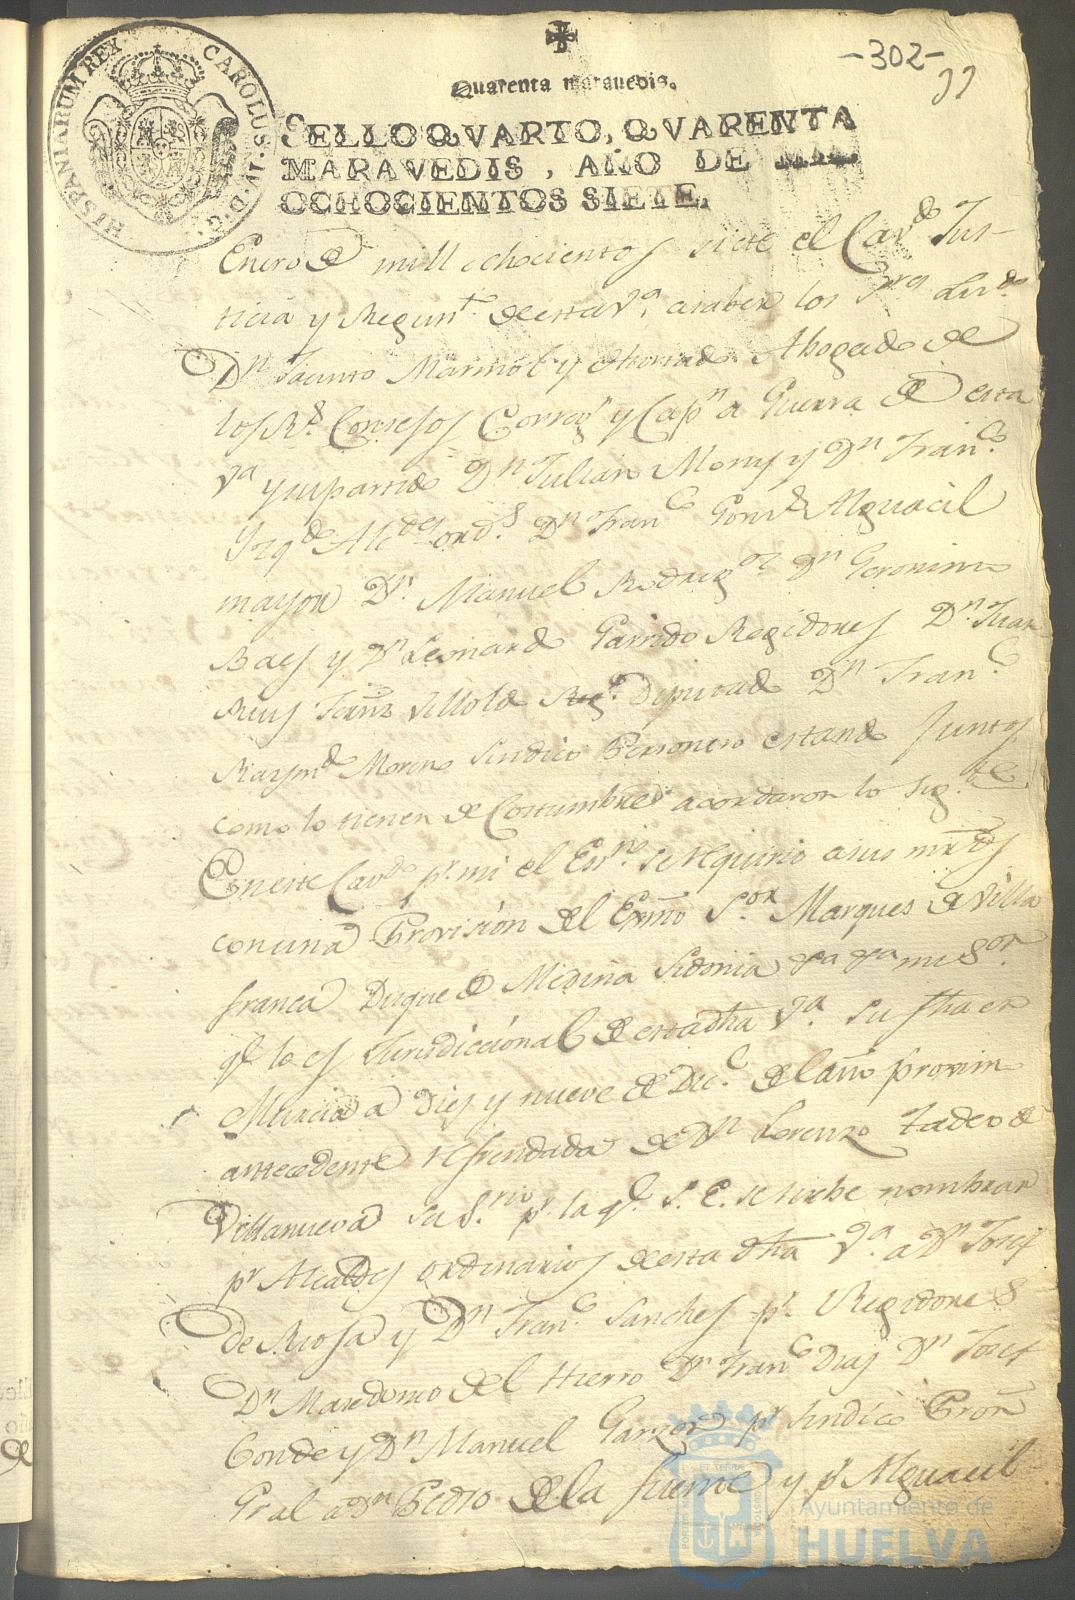 -302-
HISPANIARUM REX CAROLUS IV D.G.
Quarenta maravedis.
SELLO QVARTO, QVARENTA
MARAVEDIS, AÑO DE MIL
OCHOCIENTOS SIETE.
Enero de mill ochocientos siete el Cavdo. Jus-
ticia y Regimto. de esta Va. a saber los Sres. Licdo.
Dn. Jacinto Marmol y Abogado de
los Rs. Consejos Corregr. y Capn. a Guerra de esta
Va. y su Partido Dn. Julian Mony y Dn. Franco.
Izqdo. Alcdes. ords. Dn. Franco. Gonzs. Alguacil
mayor Dn. Manuel Rodrigz. Dn. Geronimo
Baes y Dn. Leonardo Garrido Regidores Dn. Juan
Ruis Fernz Diputado Dn. Franco.
Raymdo. Moreno Sindico Personero estando juntos
como lo tienen de Costumbre acordaron lo sigte.
En este Cavdo. pr. mi el Esno. se requirio a sus mrds
con una Provision del Exmo Sor. Marques de Villa
franca Duque de Medina Sidonia mi Sor.
qe. lo es Jurisdiccional de esta dha Va. su fha en
Murcia a dies y nueve de Dice. del año proxim
antecedente refrendada de Dn. Lorenzo Tadeo de
Villanueva su Srio. pr. la qe. S. E. se sirbe nombrar
pr. Alcaldes ordinarios de esta dha Va. a Dn. Josef
de Riosa y Dn. Franco. Sanches pr. Regidores
Dn. Macedonio del Hierro Dn. Franco. Dias Dn. Josef
Conde y Dn. Manuel Garzon pr. Sindico Pror.
Gral a Dn. Pedro de la Fuente y pr. Alguacil
Ayuntamiento de
HUELVA